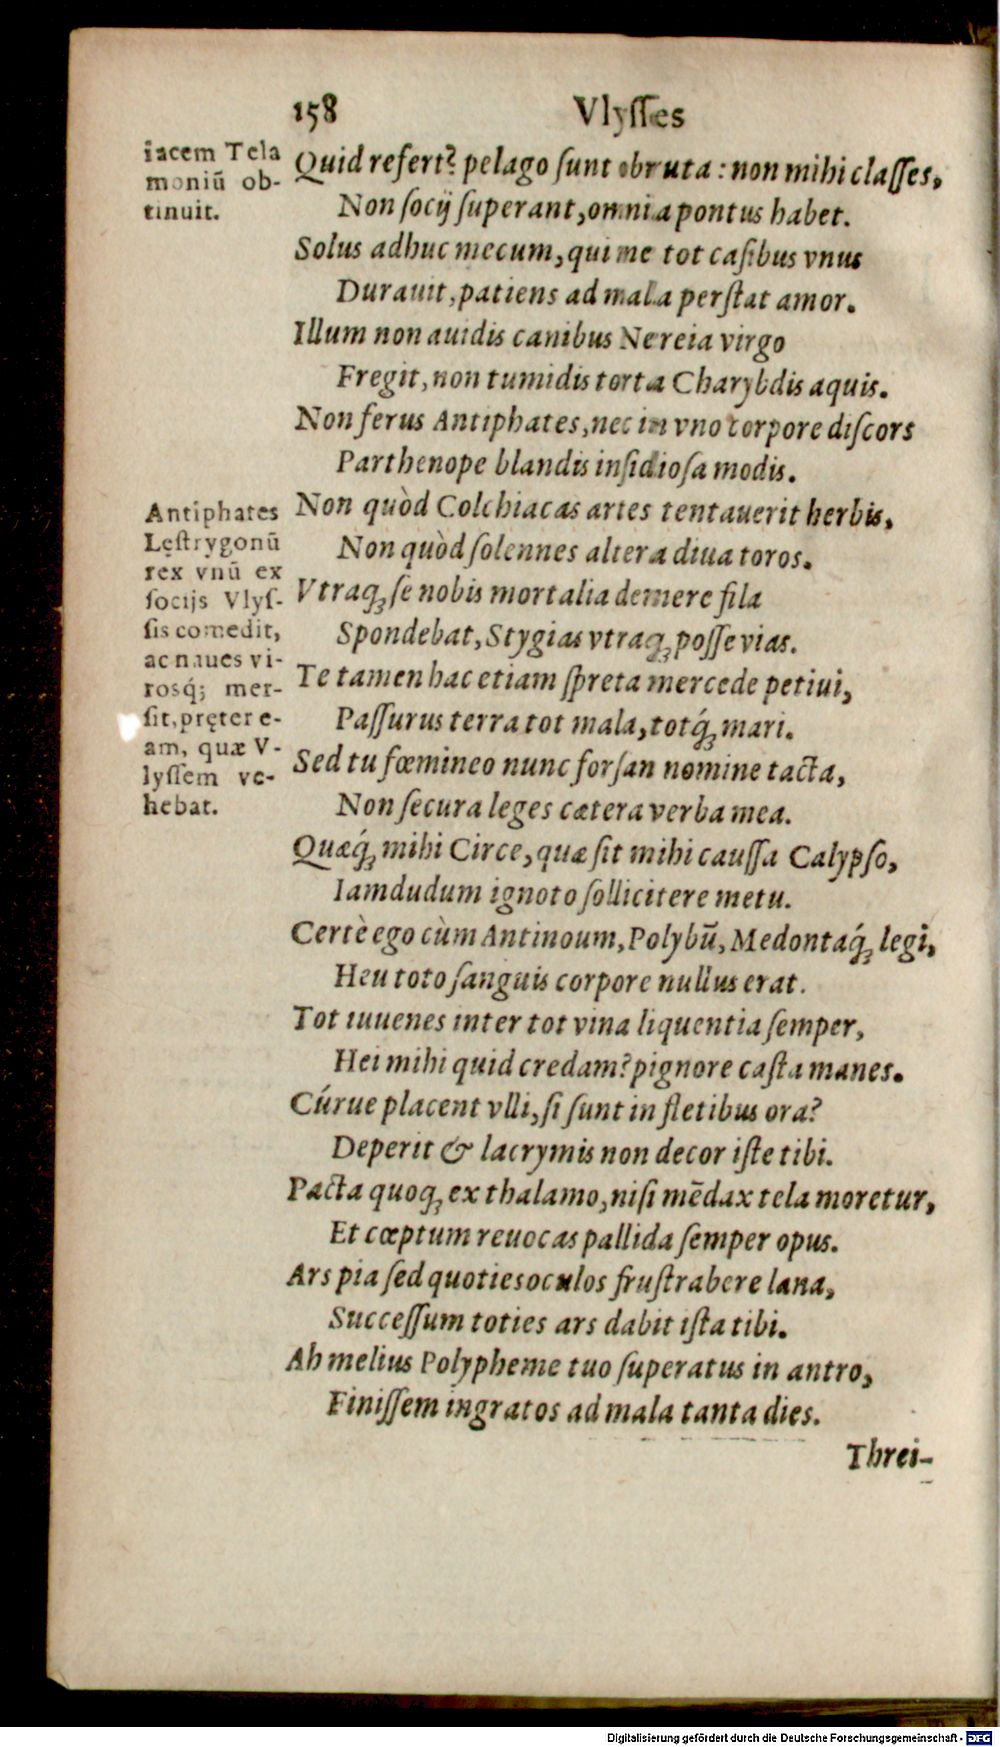 158 Vlyſſes
iacem Tela
moniū ob-
tinuit.
Quid refert? pelago ſunt obruta: non mihi claſſes,
Non ſocij ſuperant, omnia pontus habet.
Solus adhuc mecum, qui me tot caſibus vnus
Durauit, patiens ad mala perſtat amor.
Illum non auidis canibus Nereia virgo
Fregit, non tumidis torta Charybdis aquis.
Non ferus Antiphates, nec in vno corpore diſcors
Parthenope blandis inſidioſa modis.
Antiphates
Lęſtrygonū
rex vnū ex
ſocijs Vlyſ-
ſis comedit,
ac naues vi-
rosq́; mer-
ſit, pręter e-
am, quæ V-
lyſſem ve-
hebat.
Non quòd Colchiacas artes tentauerit herbis,
Non quòd ſolennes altera diua toros.
Vtraqꝫ ſe nobis mortalia demere fila
Spondebat, Stygias vtraqꝫ poſſe vias.
Te tamen hac etiam ſpreta mercede petiui,
Paſſurus terra tot mala, totq́ꝫ mari.
Sed tu fœmineo nunc forſan nomine tacta,
Non ſecura leges cætera verba mea.
Quæq́ꝫ mihi Circe, quæ ſit mihi cauſſa Calypſo,
Iamdudum ignoto ſollicitere metu.
Certè ego cùm Antinoum, Polybū, Medontaq́ꝫ legi,
Heu toto ſanguis corpore nullus erat.
Tot iuuenes inter tot vina liquentia ſemper,
Hei mihi quid credam? pignore caſta manes.
Cúrue placent vlli, ſi ſunt in fletibus ora?
Deperit & lacrymis non decor iſte tibi.
Pacta quoqꝫ ex thalamo, niſi mēdax tela moretur,
Et cœptum reuocas pallida ſemper opus.
Ars pia ſed quoties oculos fruſtrabere lana,
Succeſſum toties ars dabit iſta tibi.
Ah melius Polypheme tuo ſuperatus in antro,
Finiſſem ingratos ad mala tanta dies.
Threi-
Digitalisierung gefördert durch die Deutsche Forschungsgemeinschaft - DFG